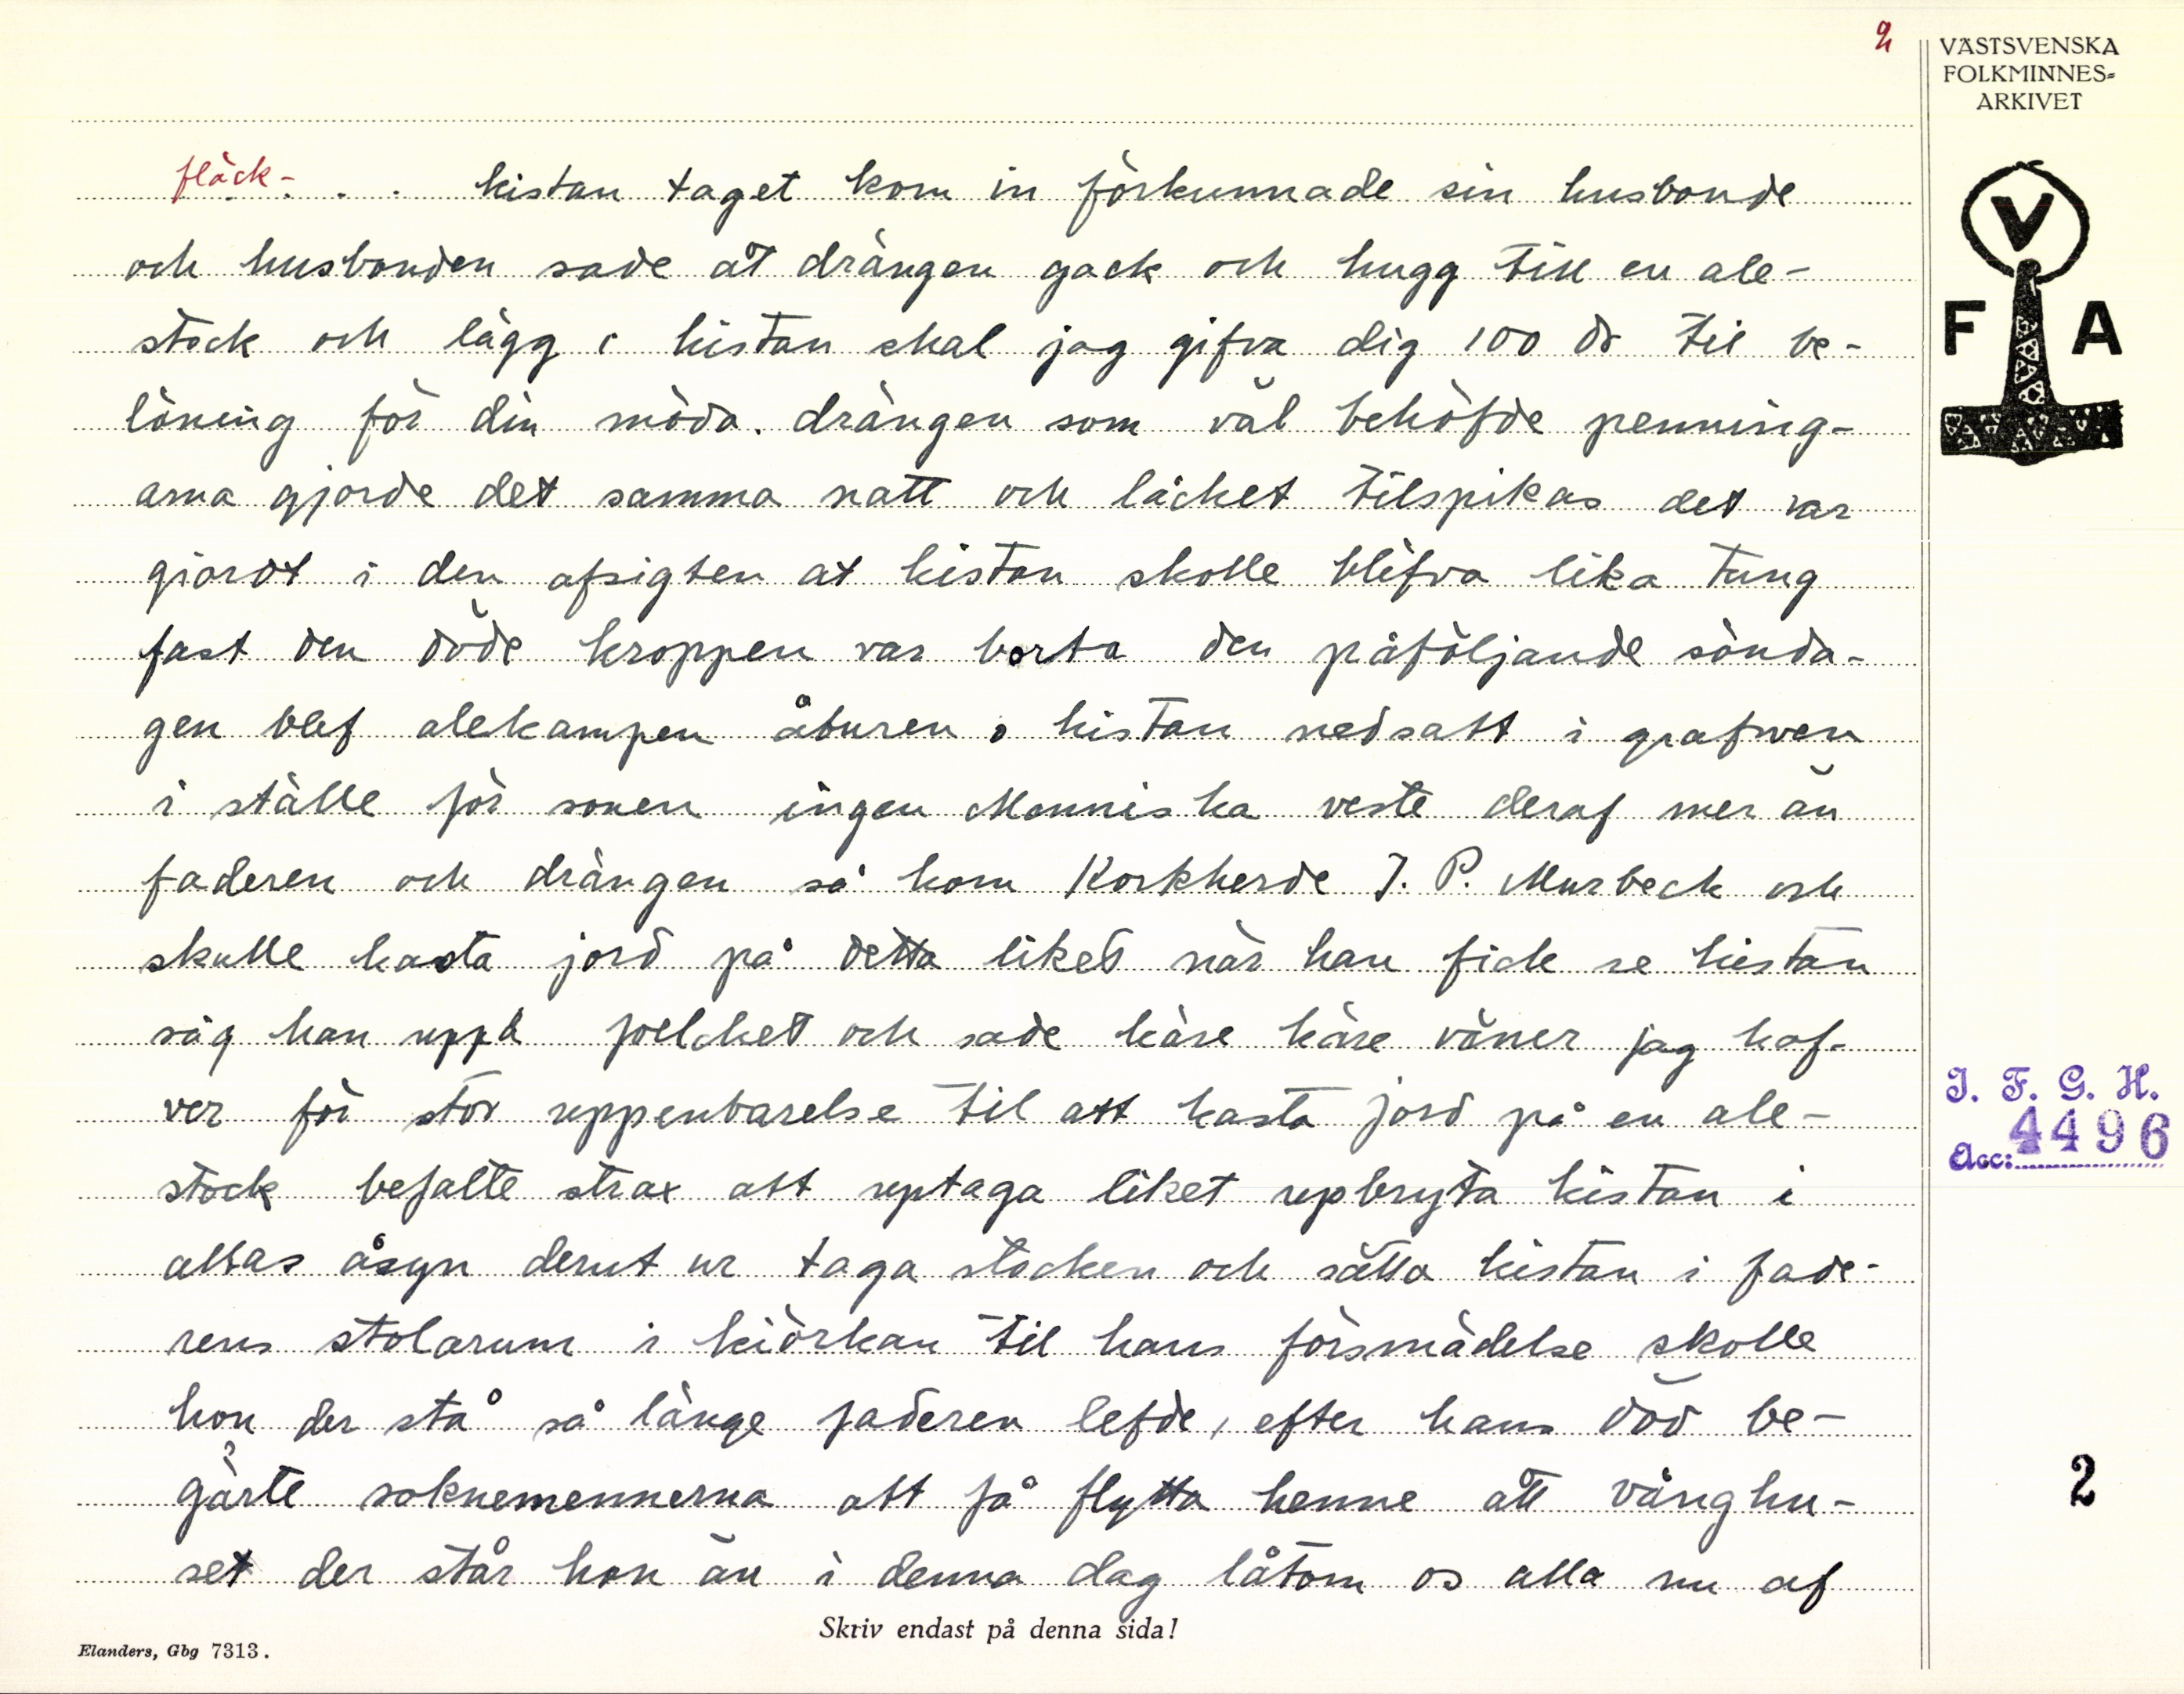 2
VÄSTSVENSKA
FOLKMINNES=
ARKIVET
fläck-
. . . kistan taget kom in förkunnade sin husbonde
och husbonden sade åt drängen gack och hugg till en ale-
stock och lägg i kistan skal jag gifva dig 100 dr til be-
löning för din möda. drängen som väl behöfde penning-
arna gjorde det samma natt och låcket tilspikas det var
giordt i den afsigten at kistan skolle blifva lika tung
fast den döde kroppen var borta den påföljande sönda-
gen blef alekampen åburen o kistan nedsatt i grafwen
i ställe för sonen ingen Menniska veste deraf mer än
faderen och drängen så kom Korkherde J. P. Murbeck och
skulle kasta jord på detta liket när han fick se kistan
såg han uppå foelcket och sade käre käre vänner jag haf-
ver för stor uppenbarelse til att kasta jord på en ale-
stock befalte strax att uptaga liket upbryta kistan i
allas åsyn derut ur taga stocken och sätta kistan i fade-
rens stolarum i kiörkan til hans försmädelse skolle
hon der stå så länge faderen lefde, efter hans död be-
gärte soknemennerna att få flytta henne ått vånghu-
set der står hon än i denna dag låtom os alla nu af
Skriv endast på denna sida!
Elanders, Gbg 7313.
V
F A
I. F. G. H.
4496
Acc:
2